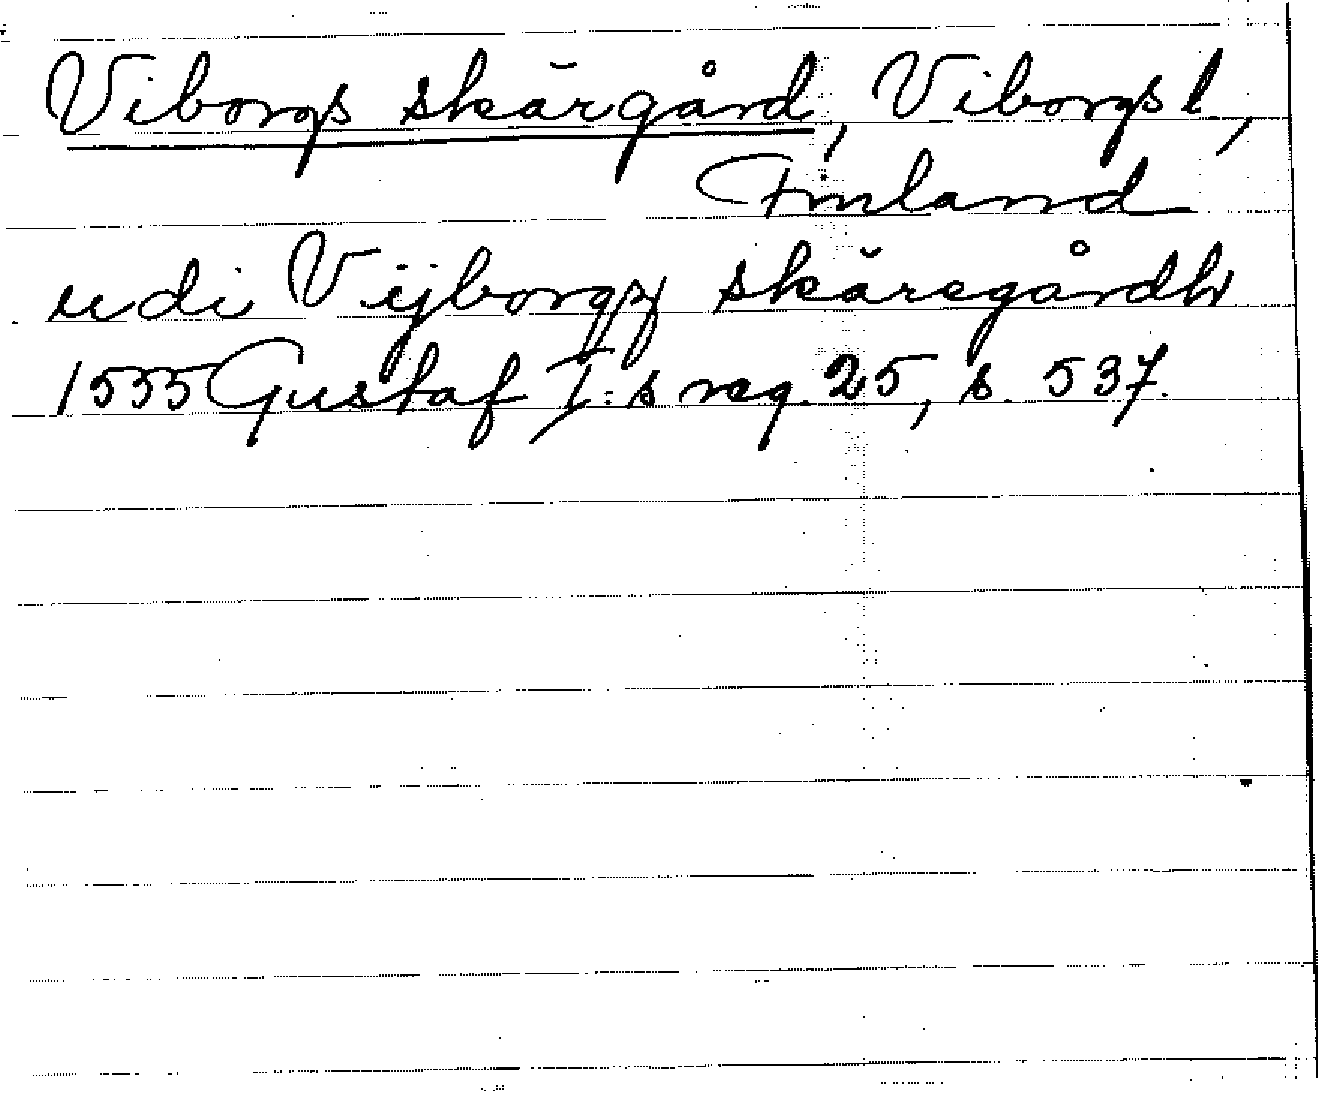 Viborgs skärgård, Viborgs l,
Finland
udi Vijborgz skäregårdh
1555 Gustaf I:s reg. 25, s. 537.